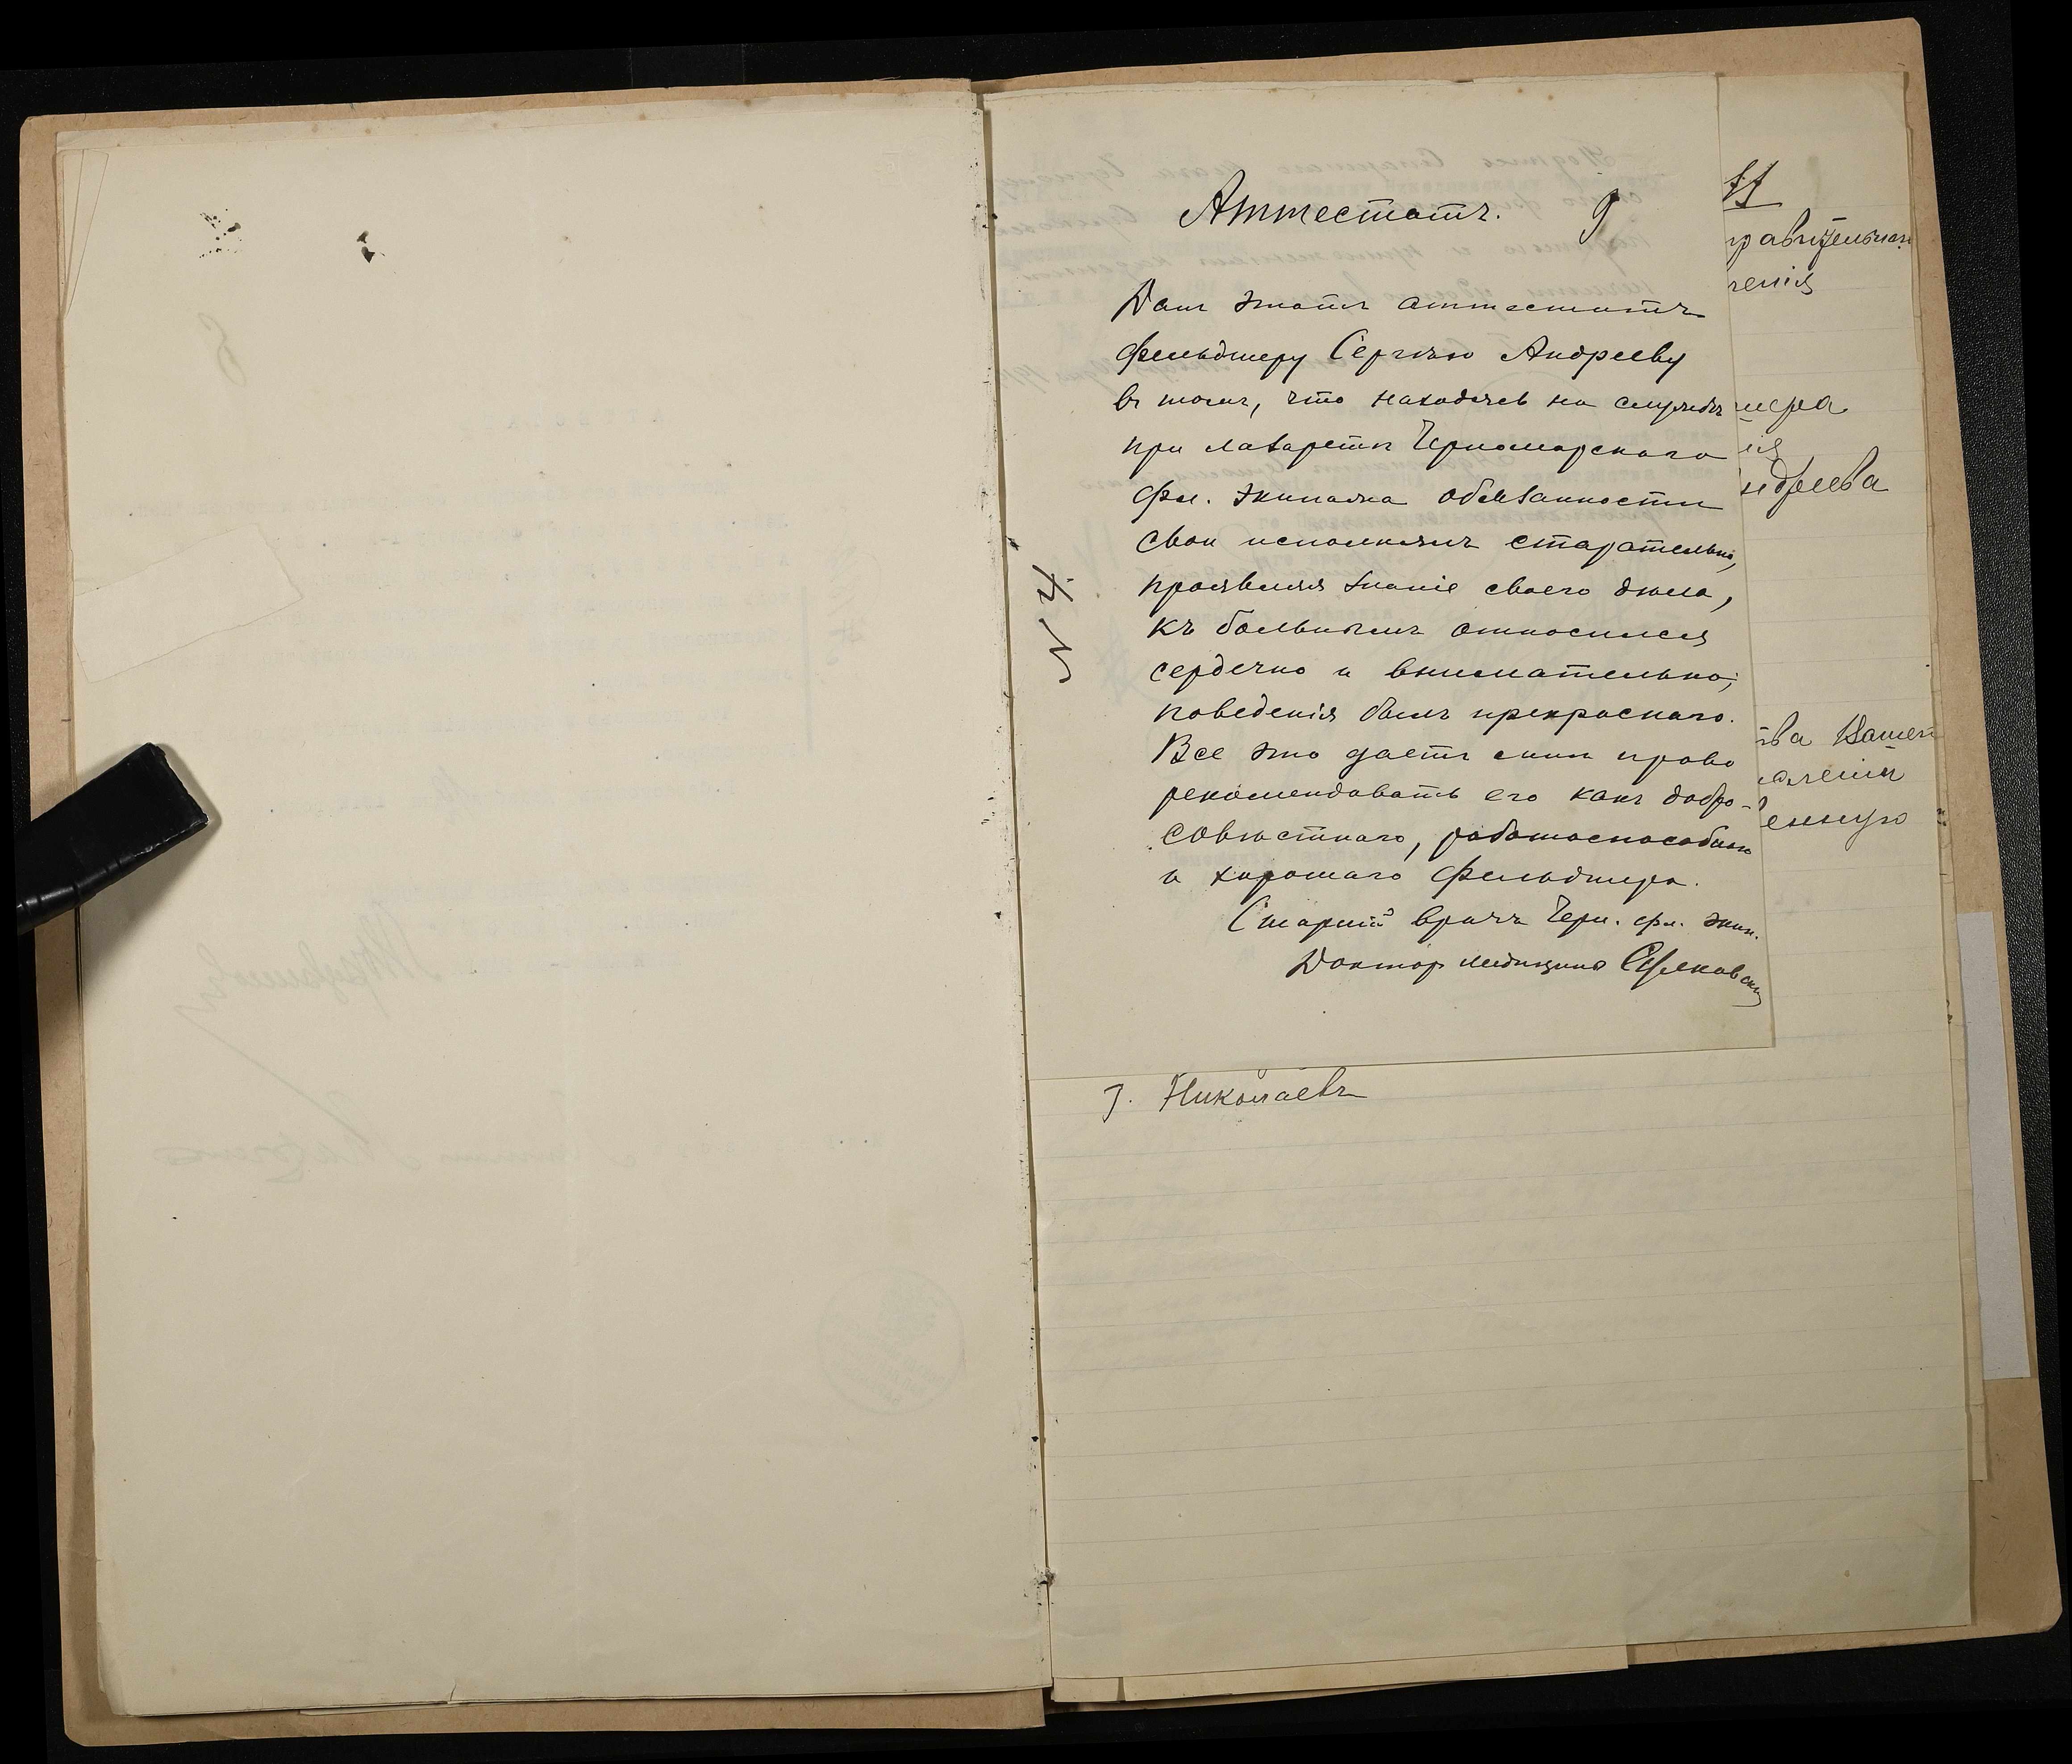 Аттестатъ.
9
Данъ этотъ аттестатъ
фельдшеру Сергѣю Андрееву
въ томъ, что находясь на службѣ
при лазаретѣ Черноморскаго
фл. экипажа обязанности
свои исполнялъ старательно,
проявляя знаніе своего дѣла,
къ больнымъ относился
сердечно и внимательно;
поведенія былъ прекраснаго.
Все это даетъ мнѣ право
рекомендовать его какъ добро-
совѣстнаго, работоспособнаго
и хорошаго фельдшера.
Старшій врачъ Черн. фл. экип.
Докторъ медицины
N 4.
11
енія
шера
ія
ндреева
тва Вашего
енную
г. Николаевъ